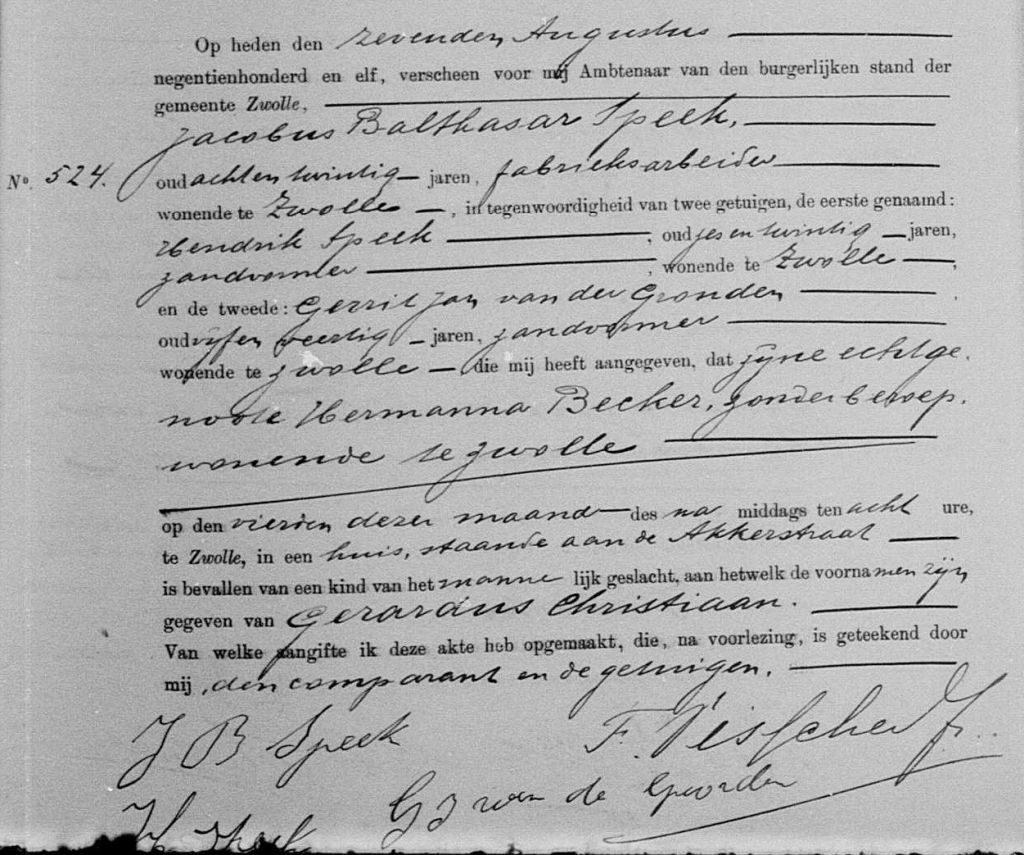 Op heden den zevenden Augustus
negentienhonderd en elf, verscheen voor mij Ambtenaar van den burgerlijken stand der
gemeente Zwolle,
Jacobus Balthasar Speek,
No. 524. oud achtentwintig jaren, fabrieksarbeider
wonende te Zwolle, in tegenwoordigheid van twee getuigen, de eerste genaamd:
Hendrik Speek, oud zesentwintig jaren,
zandvormer, wonende te Zwolle,
en de tweede: Gerrit Jan van der Gronden,
oud vijfenveertig jaren, zandvormer
wonende te Zwolle, die mij heeft aangegeven, dat zijne echtge
noote Hermanna Becker, zonder beroep,
wonende te Zwolle
op den vierden dezer maand des na middags ten acht ure,
te Zwolle, in een huis, staande aan de Akkerstraat
is bevallen van een kind van het manne lijk geslacht, aan hetwelk de voornamen zijn
gegeven van Gerardus Christiaan.
Van welke aangifte ik deze akte heb opgemaakt, die, na voorlezing, is geteekend door
mij, den comparant en de getuigen.
J B Speek F. Visscher Jr.
H Speek G J van de